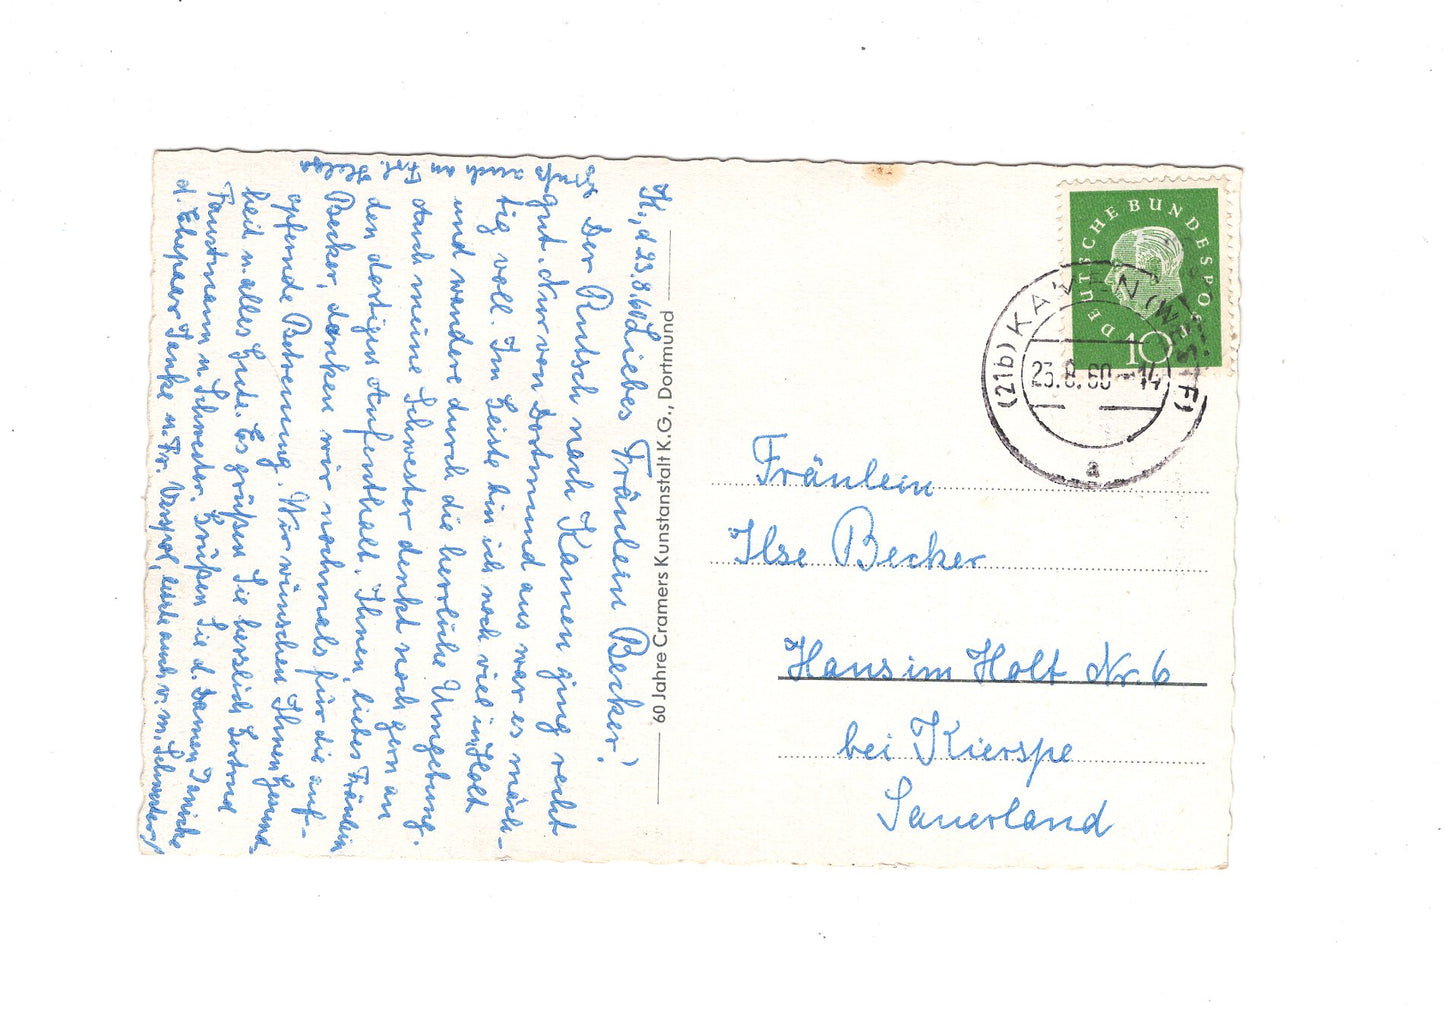 K., d 23.8.60
Liebes Fräulein Becker!
Der Rutsch nach Kamen ging recht
gut. Nur von Dortmund aus war es mäch-
tig voll. Im Geiste bin ich noch viel in Holt
und wandere durch die herrliche Umgebung.
Auch meine Schwester denkt noch gern an
den dortigen Aufenthalt. Ihnen, liebes Fräulein
Becker, danken wir nochmals für die auf-
opfernde Betreuung. Wir wünschen Ihnen Gesund-
heit u. alles Gute. Es grüßen Sie herzlich Gertrud
Faustmann u. Schwester. Grüßen Sie d. Damen
d. Ehepaar Janke u. Fr. auch v. m. Schwester!
Gruß auch an Frl. Helga
60 Jahre Cramers Kunstanstalt K.G., Dortmund
DEUTSCHE BUNDESPOST
10
(21b) KAMEN (WESTF)
23.8.60-14
a
Fräulein
Ilse Becker
Haus im Holt Nr. 6
bei Kierspe
Sauerland